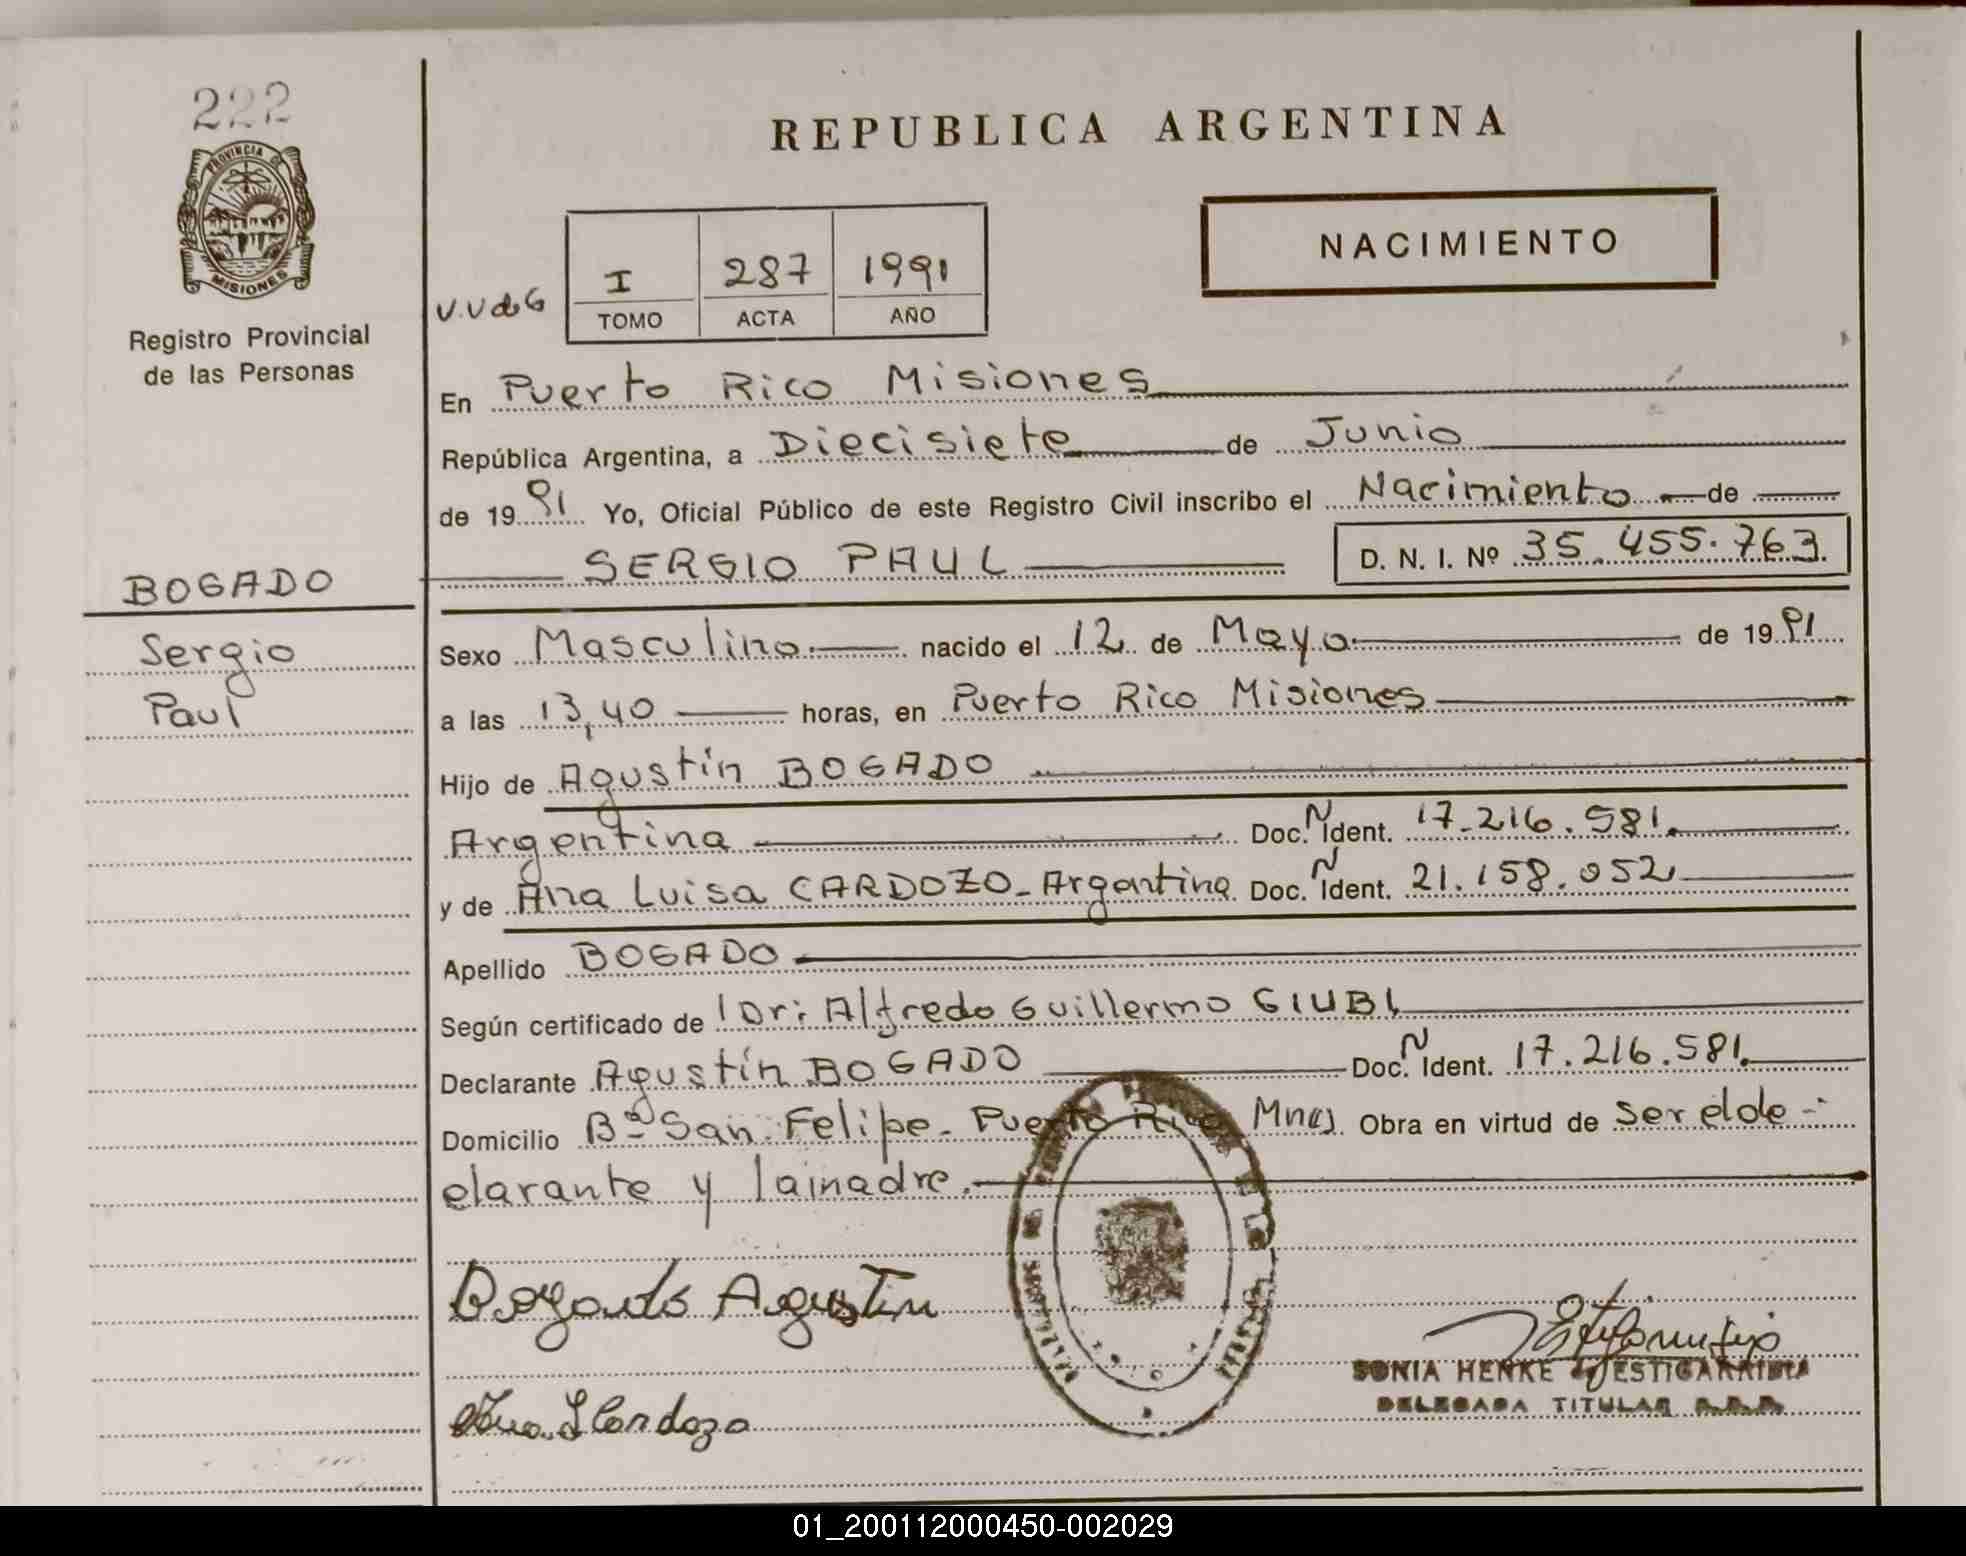 222
PROVINCIA DE
MISIONES
Registro Provincial
de las Personas
REPUBLICA ARGENTINA
NACIMIENTO
V.V de G
I 287 1991
TOMO ACTA AÑO
En Puerto Rico Misiones
República Argentina, a Diecisiete de Junio
de 19 91 Yo, Oficial Público de este Registro Civil inscribo el Nacimiento de
SERGIO PAUL D. N. I. Nº 35.455.763
BOGADO
Sergio
Paul
Sexo Masculino nacido el 12 de Mayo de 19 91
a las 13,40 horas, en Puerto Rico Misiones
Hijo de Agustín BOGADO
Argentina Doc. N Ident. 17.216.581.
y de Ana Luisa CARDOZO - Argentina Doc. N Ident. 21.158.052
Apellido BOGADO
Según certificado de Dr: Alfredo Guillermo GIUBI
Declarante Agustín BOGADO Doc. N Ident. 17.216.581.
Domicilio Bº San Felipe - Puerto Rico Mnes. Obra en virtud de ser el de-
clarante y la madre.
Bogado Agustin
Ana L Cardozo
SONIA HENKE ESTIGARRIBIA
DELEGADA TITULAR
01_200112000450-002029